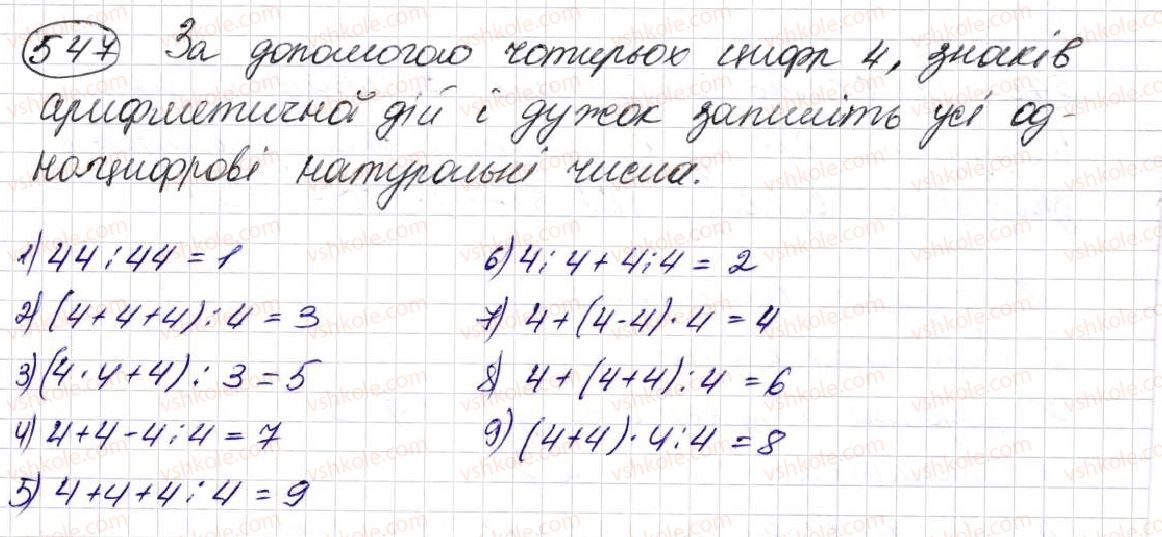 547 За допомогою чотирьох цифр 4, знаків
арифметичної дій і дужок запишіть усі од-
ноцифрові натуральні числа.
1) 44 : 44 = 1
2) (4+4+4) : 4 = 3
3) (4·4+4) : 3 = 5
4) 4+4-4:4 = 7
5) 4+4+4:4 = 9
6) 4:4+4:4 = 2
7) 4+(4-4)·4 = 4
8) 4+(4+4):4 = 6
9) (4+4)·4:4 = 8